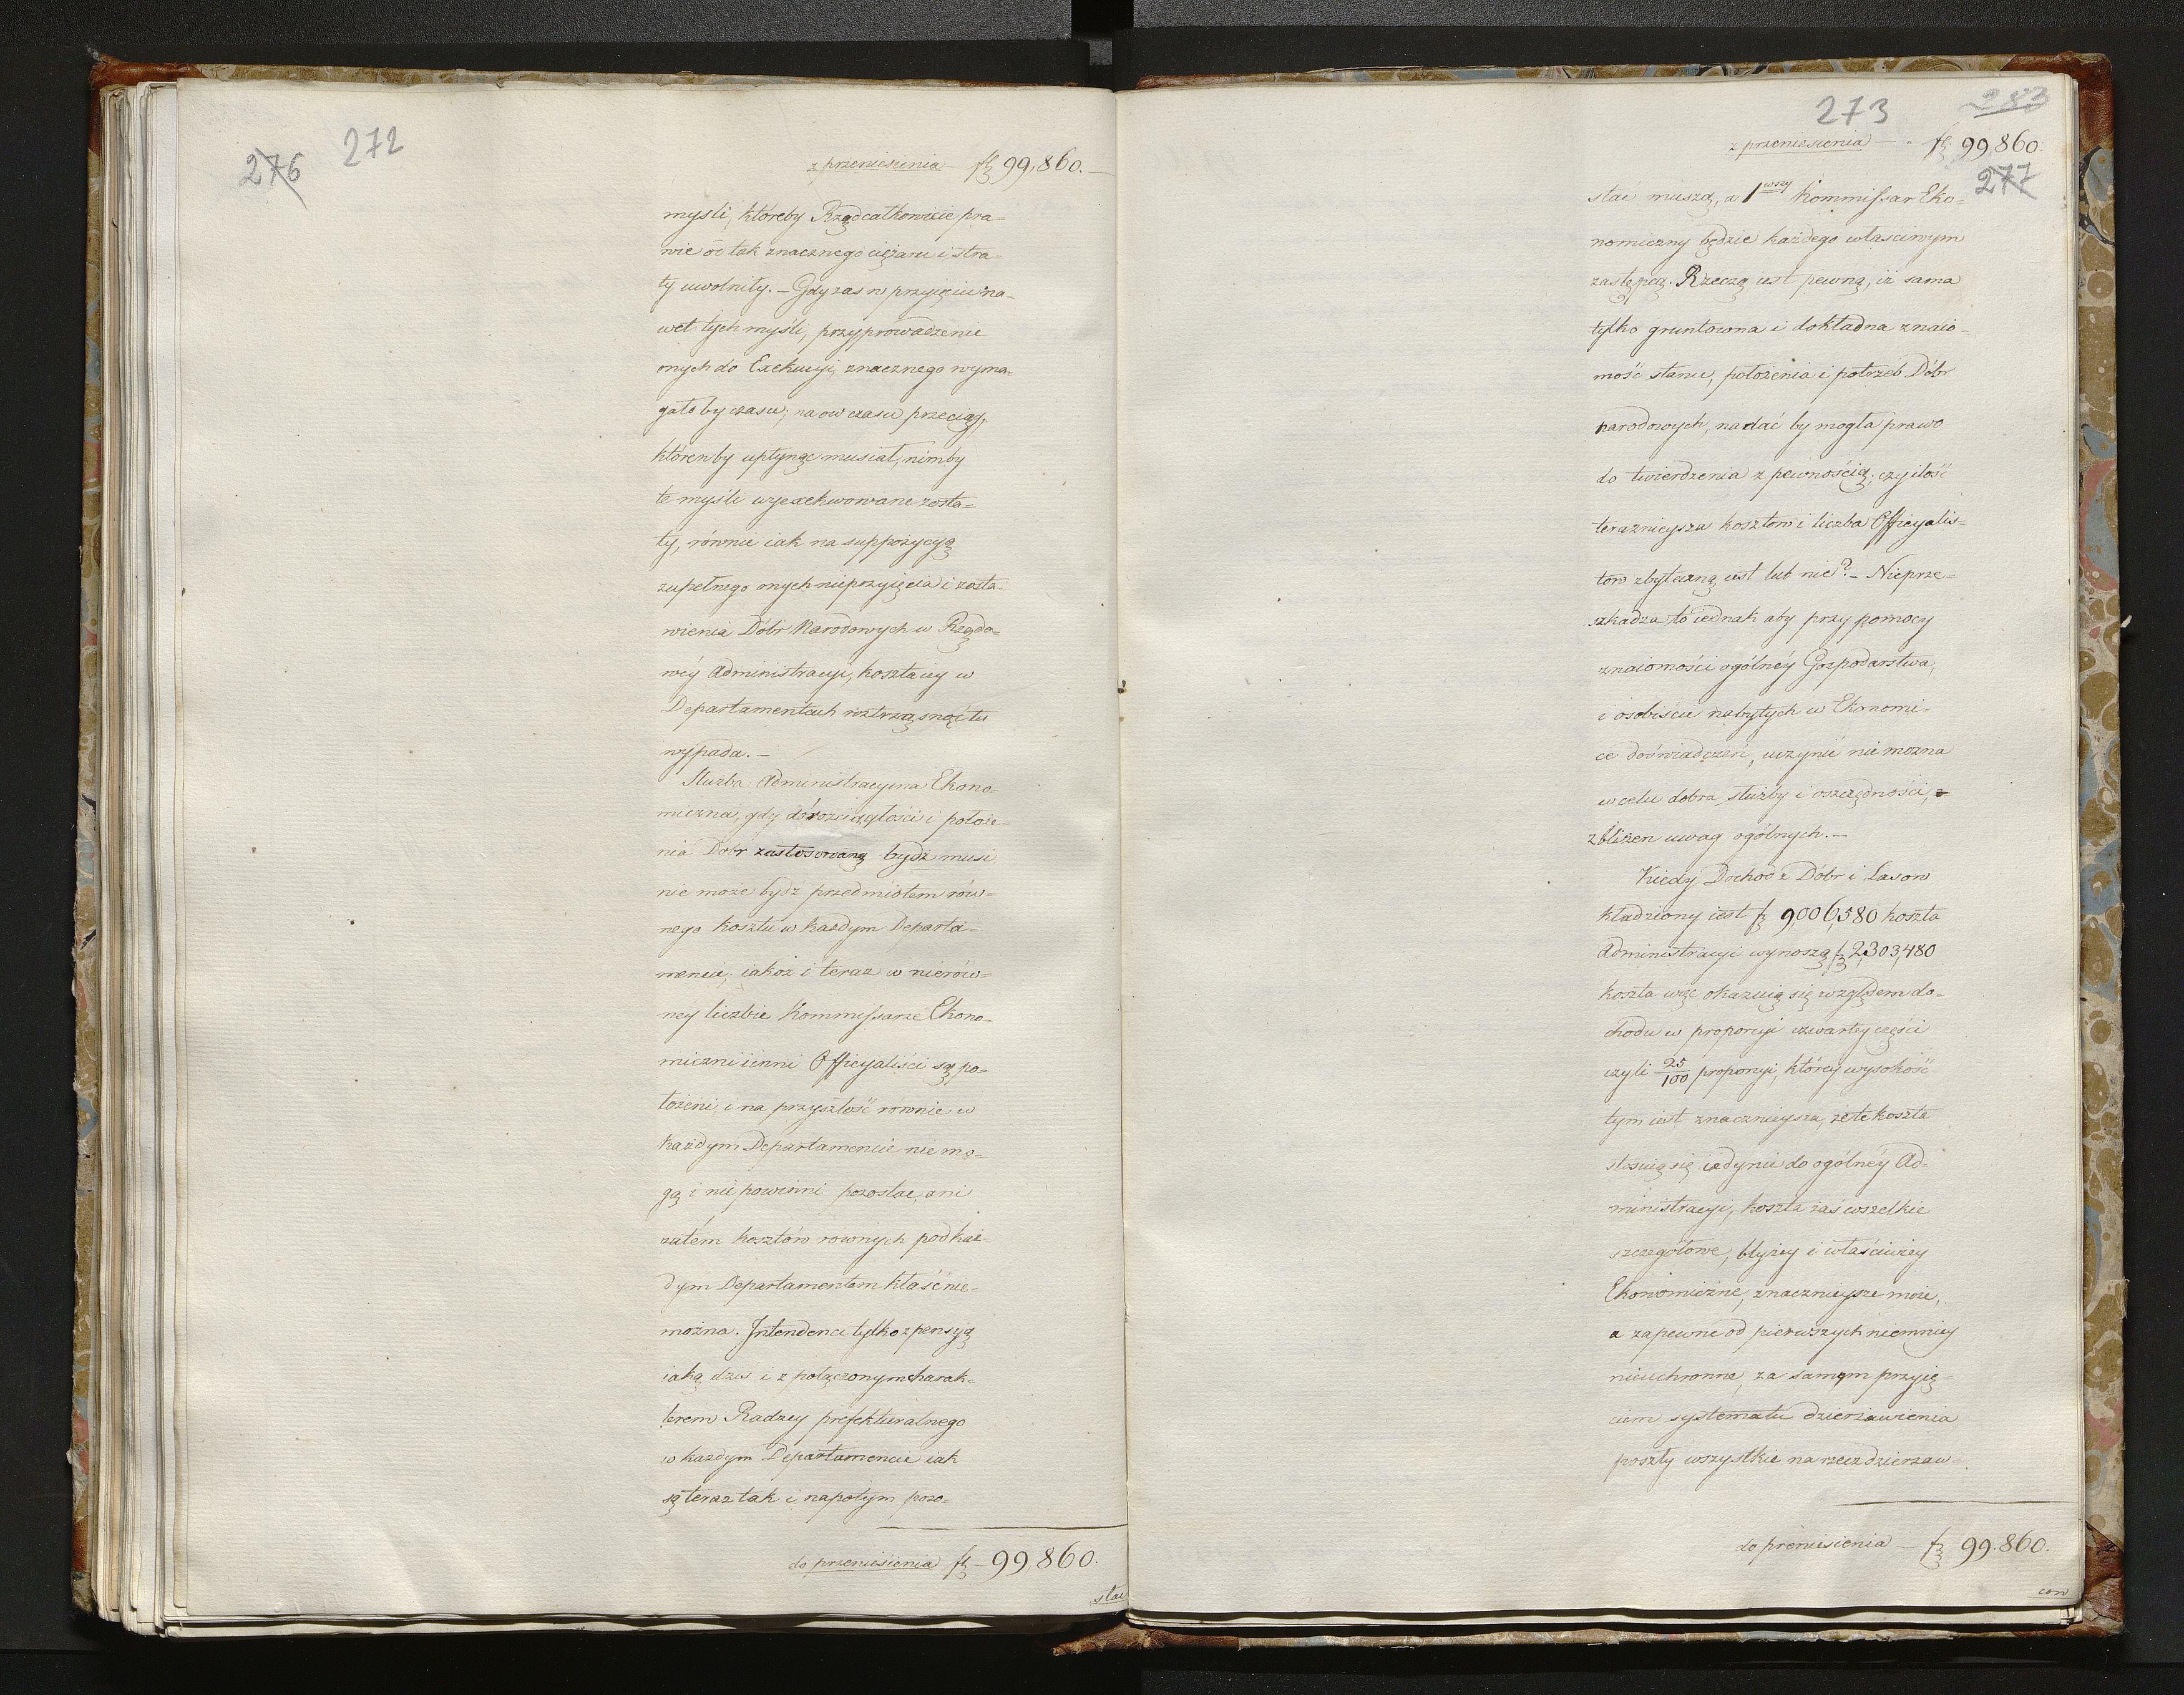 276 272
z przeniesienia – fl 99,860. –
mysli, któreby Rząd całkowicie pra=
wie od tak znacznego ciężaru i stra=
ty uwolniły. – Gdy zas w przyięciu na=
wet tych myśli, przyprowadzenie
onych do Exekucyi, znacznego wyma=
gało by czasu; na ow czasu przeciąg,
którenby upłynąć musiał, nimby
te myśli wyexekwowane zosta=
ły, równie iak na suppozycyą
zupełnego onych nieprzyięcia i zosta=
wienia Dóbr Narodowych w Rządo=
wéy Administracyi, koszta iey w
Departamentach roztrząsnąć tu
wypada. –
Służba Administracyina Ekono=
miczna, gdy do rozciągłości i położe=
nia Dóbr zastosowaną bydz musi
nie może bydź przedmiotem rów=
nego kosztu w każdym Departa=
mencie, iakoż i teraz w nierów=
ney liczbie Kommissarze Ekono=
miczni i inni Officyaliści są po=
łożeni i na przyszłość rownie w
każdym Departamencie nie mo=
gą i nie powinni pozostać, ani
zatem kosztów rownych pod każ=
dym Departamentem kłaść nie=
można. Intendenci tylko z pensyą
iaką dziś i z połączonym charak=
terem Radzcy prefekturalnego
w każdym Departamencie iak
są teraz tak i napotym pozo=
do przeniesienia fl – 99,860.
stać
273 283
z przeniesienia – . fl 99,860.
277
stać muszą, a 1wszy Kommissar Eko=
nomiczny będzie każdego własciwym
zastępcą. Rzeczą iest pewną, iż sama
tylko gruntowna i dokładna znaio=
mość stanu, położenia i potrzeb Dóbr
narodowych, nadać by mogła prawo
do twierdzenia z pewnością, czy ilość
teraznieysza kosztow i liczba Officyalis=
tow zbyteczną iest lub nie? – Nieprze=
szkadza to iednak aby przy pomocy
znaiomości ogólnéy Gospodarstwa,
i osobiscie nabytych w Ekonomi=
ce doświadczeń, uczynić nie można
w celu dobra służby i oszczędności,
zbliżen uwag ogólnych. –
Kiedy Dochód z Dóbr i Lasow
kładziony iest fl 9,006,580 koszta
Administracyi wynoszą fl 2,303,480
koszta więc okazuią się względem do=
chodu w proporcyi czwartey części
czyli 25/100 proporcyi, którey wysokość
tym iest znacznieysza, że te koszta
stosuią się iedynie do ogólnéy Ad=
ministracyi, koszta zaś wszelkie
szczegółowe, bliżey i właściwiey
Ekonomiczne, znacznieysze może,
a zapewne od pierwszych niemniey
nieuchronne, za samym przyię=
ciem systematu dzierżawienia
poszły wszystkie na rzecz dzierżaw=
do preniesienia – fl 99.860.
cow